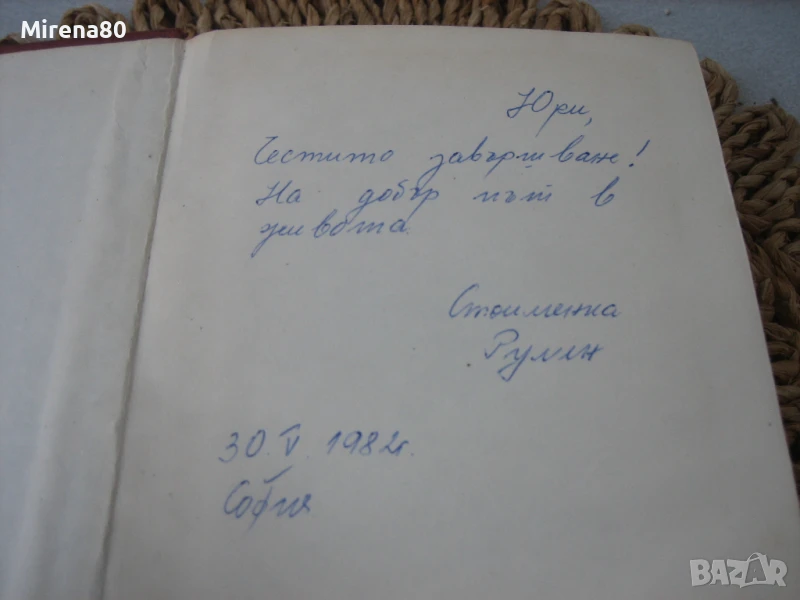 Mirena80
Юри,
Честито завършване!
На добър път в
живота.
Стоименка
Румен
30.V.1982г.
София
BAZAR